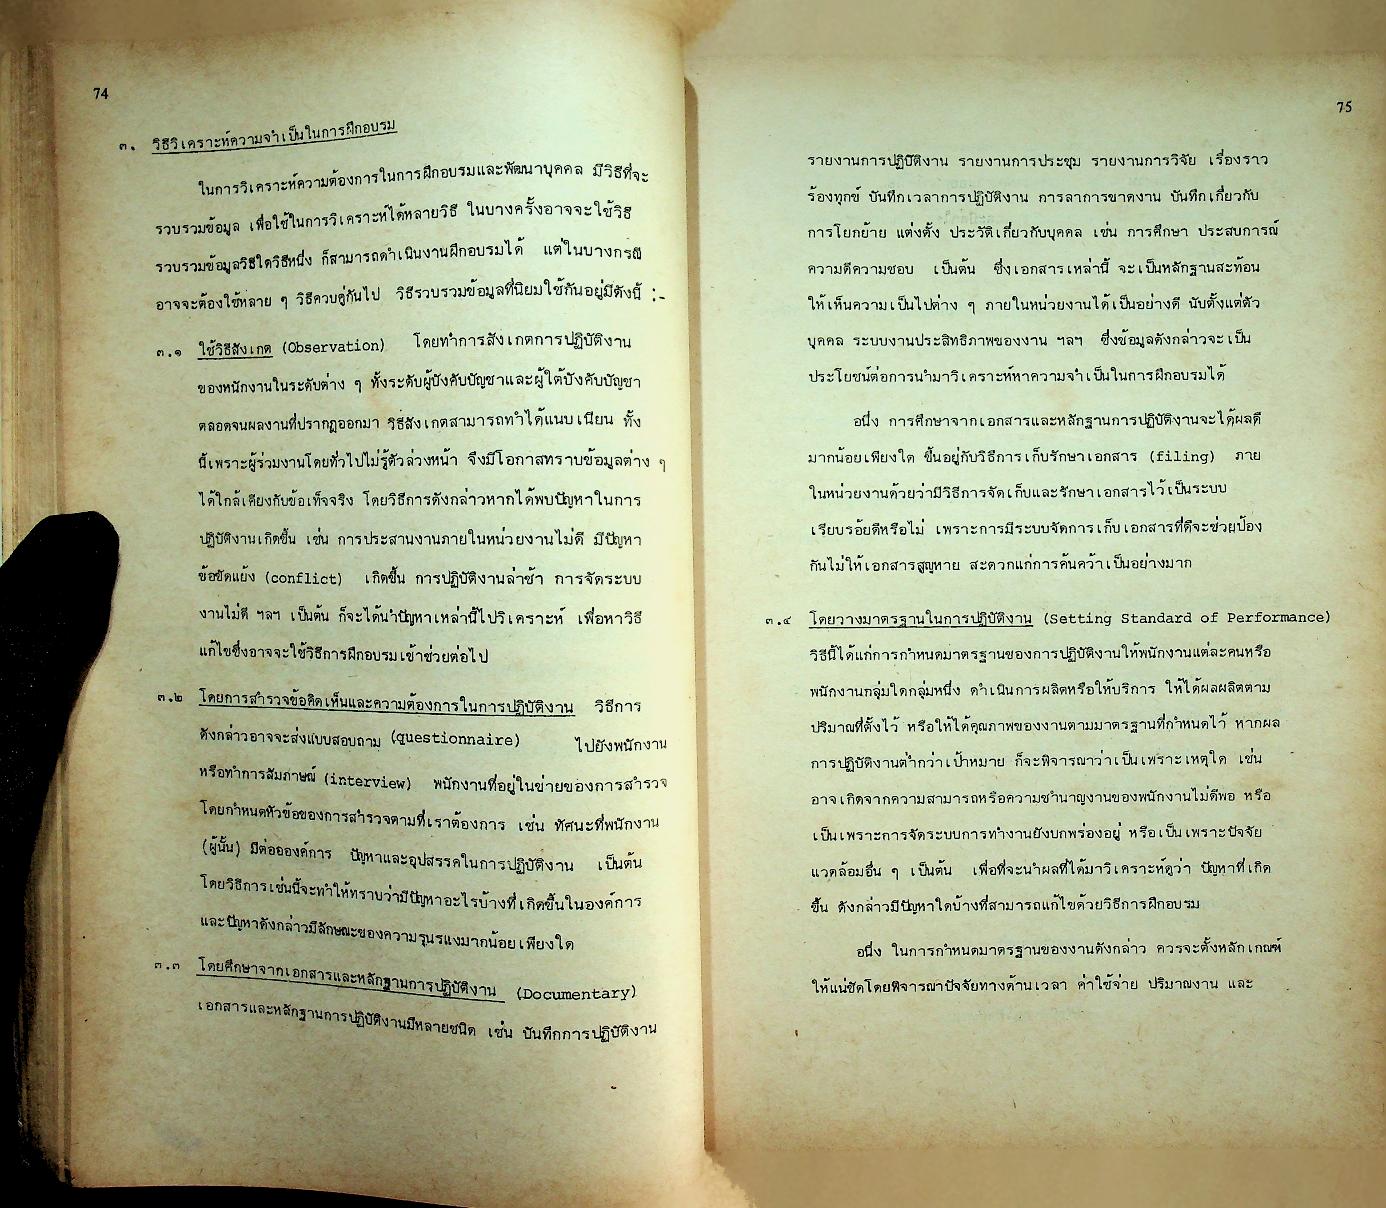 74
๓. วิธีวิเคราะห์ความจำเป็นในการฝึกอบรม
ในการวิเคราะห์ความต้องการในการฝึกอบรมและพัฒนาบุคคล มีวิธีที่จะ
รวบรวมข้อมูล เพื่อใช้ในการวิเคราะห์ได้หลายวิธี ในบางครั้งอาจจะใช้วิธี
รวบรวมข้อมูลวิธีใดวิธีหนึ่ง ก็สามารถดำเนินงานฝึกอบรมได้ แต่ในบางกรณี
อาจจะต้องใช้หลาย ๆ วิธีควบคู่กันไป วิธีรวบรวมข้อมูลที่นิยมใช้กันอยู่มีดังนี้ :-
๓.๑ ใช้วิธีสังเกต (Observation) โดยทำการสังเกตการปฏิบัติงาน
ของพนักงานในระดับต่าง ๆ ทั้งระดับผู้บังคับบัญชาและผู้ใต้บังคับบัญชา
ตลอดจนผลงานที่ปรากฏออกมา วิธีสังเกตสามารถทำได้แนบเนียน ทั้ง
นี้เพราะผู้ร่วมงานโดยทั่วไปไม่รู้ตัวล่วงหน้า จึงมีโอกาสทราบข้อมูลต่าง ๆ
ได้ใกล้เคียงกับข้อเท็จจริง โดยวิธีการดังกล่าวหากได้พบปัญหาในการ
ปฏิบัติงานเกิดขึ้น เช่น การประสานงานภายในหน่วยงานไม่ดี มีปัญหา
ข้อขัดแย้ง (conflict) เกิดขึ้น การปฏิบัติงานล่าช้า การจัดระบบ
งานไม่ดี ฯลฯ เป็นต้น ก็จะได้นำปัญหาเหล่านี้ไปวิเคราะห์ เพื่อหาวิธี
แก้ไขซึ่งอาจจะใช้วิธีการฝึกอบรมเข้าช่วยต่อไป
๓.๒ โดยการสำรวจข้อคิดเห็นและความต้องการในการปฏิบัติงาน วิธีการ
ดังกล่าวอาจจะส่งแบบสอบถาม (questionnaire) ไปยังพนักงาน
หรือทำการสัมภาษณ์ (interview) พนักงานที่อยู่ในข่ายของการสำรวจ
โดยกำหนดหัวข้อของการสำรวจตามที่เราต้องการ เช่น ทัศนะที่พนักงาน
(ผู้นั้น) มีต่อองค์การ ปัญหาและอุปสรรคในการปฏิบัติงาน เป็นต้น
โดยวิธีการเช่นนี้จะทำให้ทราบว่ามีปัญหาอะไรบ้างที่เกิดขึ้นในองค์การ
และปัญหาดังกล่าวมีลักษณะของความรุนรแงมากน้อยเพียงใด
๓.๓ โดยศึกษาจากเอกสารและหลักฐานการปฏิบัติงาน (Documentary)
เอกสารและหลักฐานการปฏิบัติงานมีหลายชนิด เช่น บันทึกการปฏิบัติงาน
75
รายงานการปฏิบัติงาน รายงานการประชุม รายงานการวิจัย เรื่องราว
ร้องทุกข์ บันทึกเวลาการปฏิบัติงาน การลาการขาดงาน บันทึกเกี่ยวกับ
การโยกย้าย แต่งตั้ง ประวัติเกี่ยวกับบุคคล เช่น การศึกษา ประสบการณ์
ความดีความชอบ เป็นต้น ซึ่งเอกสารเหล่านี้ จะเป็นหลักฐานสะท้อน
ให้เห็นความเป็นไปต่าง ๆ ภายในหน่วยงานได้เป็นอย่างดี นับตั้งแต่ตัว
บุคคล ระบบงานประสิทธิภาพของงาน ฯลฯ ซึ่งข้อมูลดังกล่าวจะเป็น
ประโยชน์ต่อการนำมาวิเคราะห์หาความจำเป็นในการฝึกอบรมได้
อนึ่ง การศึกษาจากเอกสารและหลักฐานการปฏิบัติงานจะได้ผลดี
มากน้อยเพียงใด ขึ้นอยู่กับวิธีการเก็บรักษาเอกสาร (filing) ภาย
ในหน่วยงานด้วยว่ามีวิธีการจัดเก็บและรักษาเอกสารไว้เป็นระบบ
เรียบรอ้ยดีหรือไม่ เพราะการมีระบบจัดการเก็บเอกสารที่ดีจะช่วยป้อง
กันไม่ให้เอกสารสูญหาย สะดวกแก่การค้นคว้าเป็นอย่างมาก
๓.๔ โดยวางมาตรฐานในการปฏิบัติงาน (Setting Standard of Performance)
วิธีนี้ได้แก่การกำหนดมาตรฐานของการปฏิบัติงานให้พนักงานแต่ละคนหรือ
พนักงานกลุ่มใดกลุ่มหนึ่ง ดำเนินการผลิตหรือให้บริการ ให้ได้ผลผลิตตาม
ปริมาณที่ตั้งไว้ หรือให้ได้คุณภาพของงานตามมาตรฐานที่กำหนดไว้ หากผล
การปฏิบัติงานต่ำกว่าเป้าหมาย ก็จะพิจารณาว่าเป็นเพราะเหตุใด เช่น
อาจเกิดจากความสามารถหรือความชำนาญงานของพนักงานไม่ดีพอ หรือ
เป็นเพราะการจัดระบบการทำงานยังบกพร่องอยู่ หรือเป็นเพราะปัจจัย
แวดล้อมอื่น ๆ เป็นต้น เพื่อที่จะนำผลที่ได้มาวิเคราะห์ดูว่า ปัญหาที่เกิด
ขึ้น ดังกล่าวมีปัญหาใดบ้างที่สามารถแก้ไขด้วยวิธีการฝึกอบรม
อนึ่ง ในการกำหนดมาตรฐานของงานดังกล่าว ควรจะตั้งหลักเกณฑ์
ให้แน่ชัดโดยพิจารณาปัจจัยทางด้านเวลา ค่าใช้จ่าย ปริมาณงาน และ